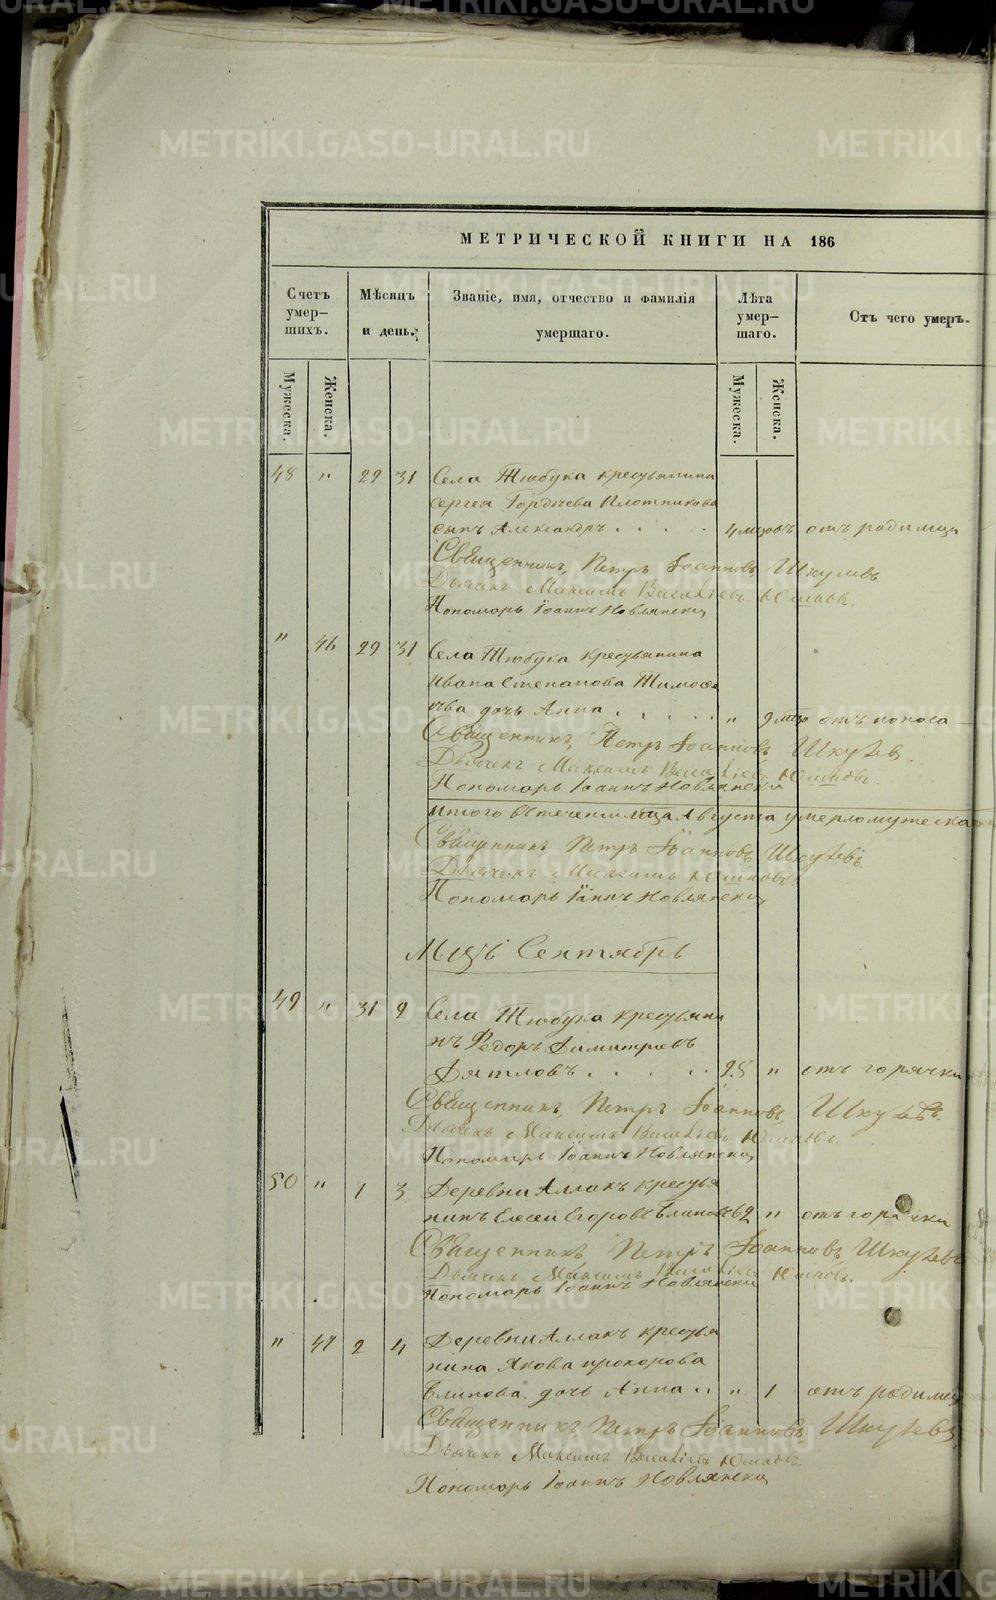 METRIKI.GASO-URAL.RU
МЕТРИЧЕСКОЙ КНИГИ НА 186
Счетъ умер–шихъ.
Мѣсяцъ и день.
Званіе, имя, отчество и фамилія умершаго.
Лѣта умер–шаго.
Отъ чего умеръ.
Мужеска.
Женска.
Мужеска.
Женска.
48 " 29 31 Села Тюбука крестьянина
Сергея Гордѣева Плотникова
сынъ Александръ . . . . 4 мцовъ отъ родимца
Священникъ Петръ Іоанновъ Шкулевъ
Дьячекъ Максимъ Васильевъ Юшковъ.
Пономарь Іоаннъ Новлянскій
" 46 29 31 Села Тюбука крестьянина
Ивана Степанова Тимофе
ева дочь Анна . . . . . " 9 мцо отъ поноса
Священникъ Петръ Іоанновъ Шкулев
Дьячекъ Максимъ Васильевъ Юшковъ.
Пономарь Іоаннъ Новлянскій
Итого въ теченіи мца Августа умерло мужеска
Священникъ Петръ Іоанновъ Шкулевъ.
Дьячекъ Максимъ Юшковъ
Пономарь Іоаннъ Новлянскій
Мцъ Сентябрь
49 " 31 2 Села Тюбука крестьяни
нъ Ѳедоръ Димитріевъ
Дятловъ . . . . . 28 " отъ горячки
Священникъ Петръ Іоанновъ Шкулевъ
Дьячекъ Максимъ Васильевъ Юшковъ.
Пономарь Іоаннъ Новлянскій
50 " 1 3 Деревни Аллакъ крестья
нинъ Елесей Егоровъ Блиновъ 62 " отъ горячки
Священникъ Петръ Іоанновъ Шкулевъ
Дьячекъ Максимъ Васильевъ Юшковъ.
Пономарь Іоаннъ Новлянскій
" 47 2 4 Деревни Аллакъ крестья
нина Якова Прохорова
Блинова дочь Анна .. " 1 отъ родимца
Священникъ Петръ Іоанновъ Шкулевъ
Дьячекъ Максимъ Васильевъ Юшковъ.
Пономарь Іоаннъ Новлянскій